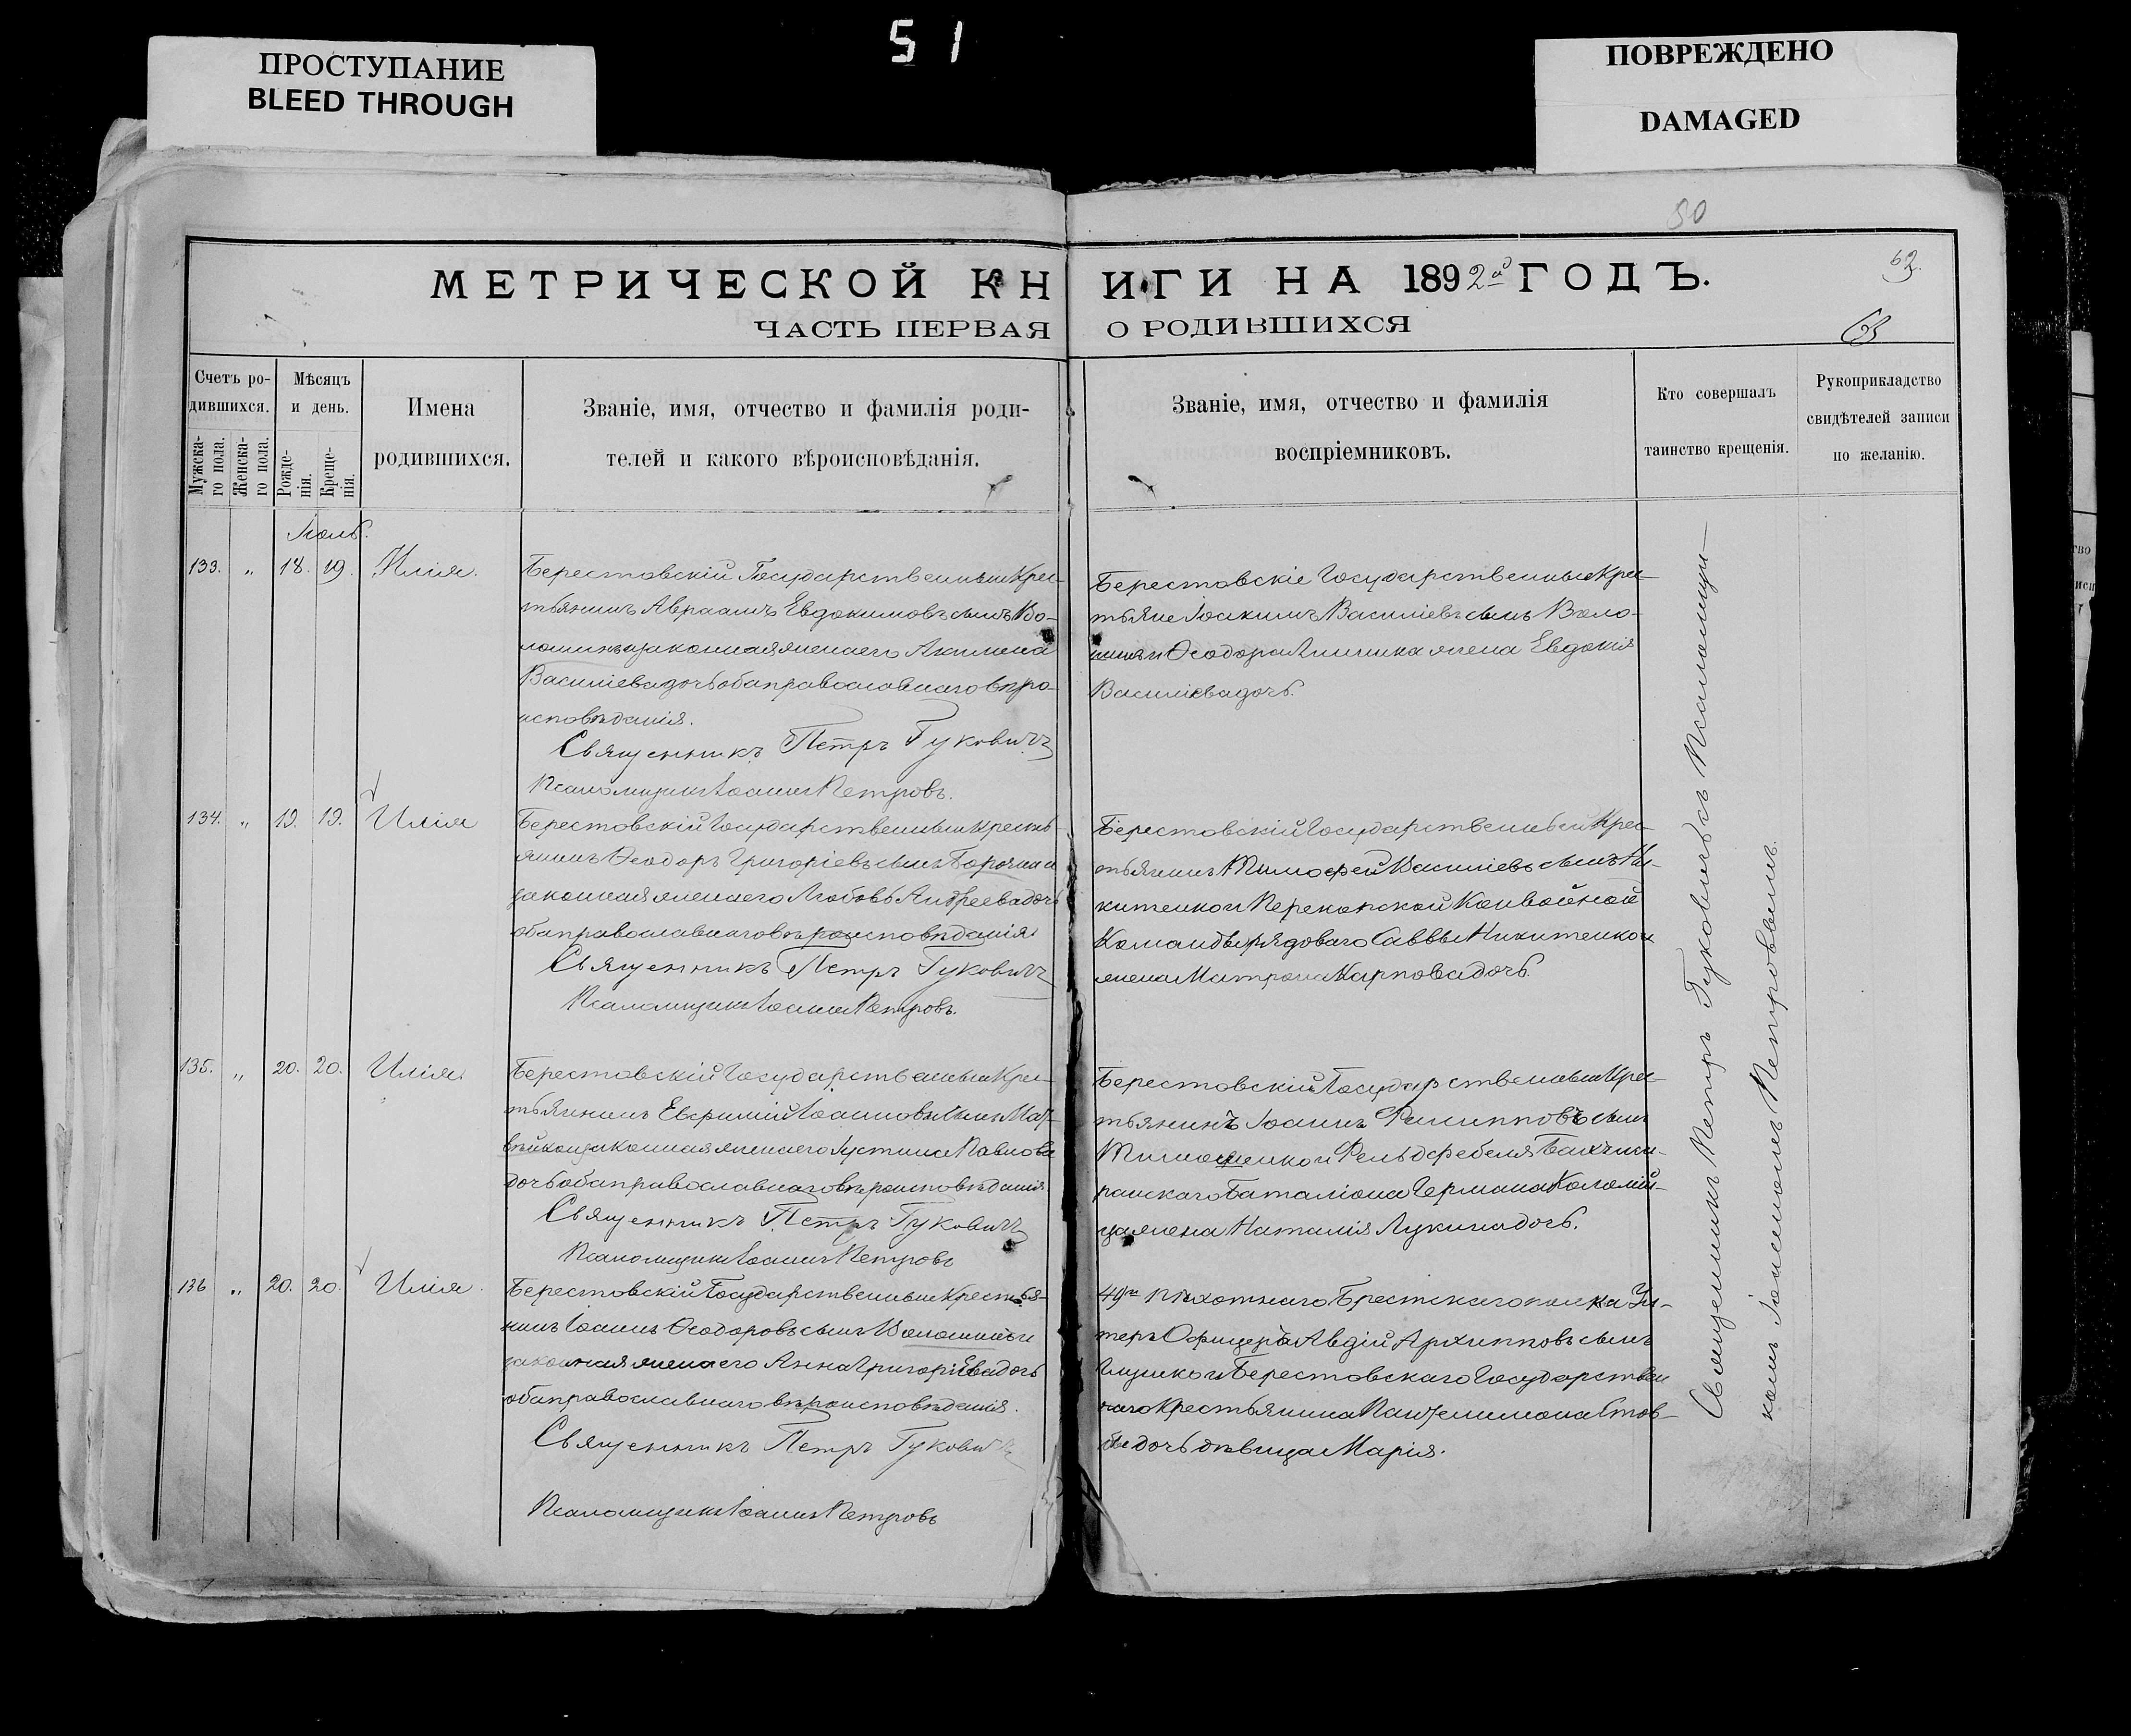 51
ПРОСТУПАНИЕ
BLEED THROUGH
ПОВРЕЖДЕНО
DAMAGED
80
62.
МЕТРИЧЕСКОЙ КНИГИ НА 1892й ГОДЪ.
ЧАСТЬ ПЕРВАЯ О РОДИВШИХСЯ
Счетъ ро-
дившихся.
Мужска-
го пола.
Женска-
го пола.
Мѣсяцъ
и день.
Рожде-
нія.
Креще-
нія.
Имена
родившихся.
Званіе, имя, отчество и фамилія роди-
телей и какого вѣроисповѣданія.
Званіе, имя, отчество и фамилія
воспріемниковъ.
Кто совершалъ
таинство крещенія.
Рукоприкладство
свидѣтелей записи
по желанію.
Іюль.
133. " 18. 19. Илія.
Берестовскій Государственный Крес-
тьянинъ Авраамъ Евдокимовъ сынъ Во-
лошинъ и законная жена его Акилина
Василіева дочь оба православнаго вѣро-
исповѣданія.
Священникъ Петръ Гуковичъ
Псаломщикъ Іоаннъ Петровъ.
Берестовскіе Государственные Крес-
тьяне Іоакимъ Василіевъ сынъ Воло-
шинъ и Ѳеодора жена Евдокія
Василіева дочь.
134. " 19. 19. Илія
Берестовскій Государственный Кресть-
янинъ Ѳеодоръ Григоріевъ сынъ и
законная жена его Любовь Андреева дочь
оба православнаго вѣроисповѣданія
Священникъ Петръ Гуковичъ
Псаломщикъ Іоаннъ Петровъ.
Берестовскій Государственный Крес-
тьянинъ Тимофей Василіевъ сынъ Ни-
китенко и Перекопской Конвойной
Команды рядоваго Саввы Никитенкои
жена Матрона Карпова дочь.
135. " 20. 20. Илія.
Берестовскій Государственный Крес-
тьянинъ Евфимій Іоанновъ сынъ Мат-
вѣйко и законная жена его Іустина Павлова
дочь оба православнаго вѣроисповѣданія.
Священникъ Петръ Гуковичъ
Псаломщикъ Іоаннъ Петровъ
Берестовскій Государственный Крес-
тьянинъ Іоаннъ Филипповъ сынъ
Тимошенко и Фельдфебеля Бахчиса-
райскаго Баталіона Германа Коломій-
ца жена Наталія Лукина дочь.
136 " 20. 20. Илія.
Берестовскій Государственный Крестья-
нинъ Іоаннъ Ѳеодоровъ сынъ Волошинъ и
законная жена его Анна Григоріева дочь
оба православнаго вѣроисповѣданія.
Священникъ Петръ Гуковичъ
Псаломщикъ Іоаннъ Петровъ
49го пѣхотнаго Брестскаго полка Ун-
теръ Офицеръ Авдій Архипповъ сынъ
Глушко и Берестовскаго Государствен
наго Крестьянина Пантелимона Стов-
бы дочь дѣвица Марія.
Священникъ Петръ Гуковичъ съ Псаломщи-
комъ Іоанномъ Петровымъ.